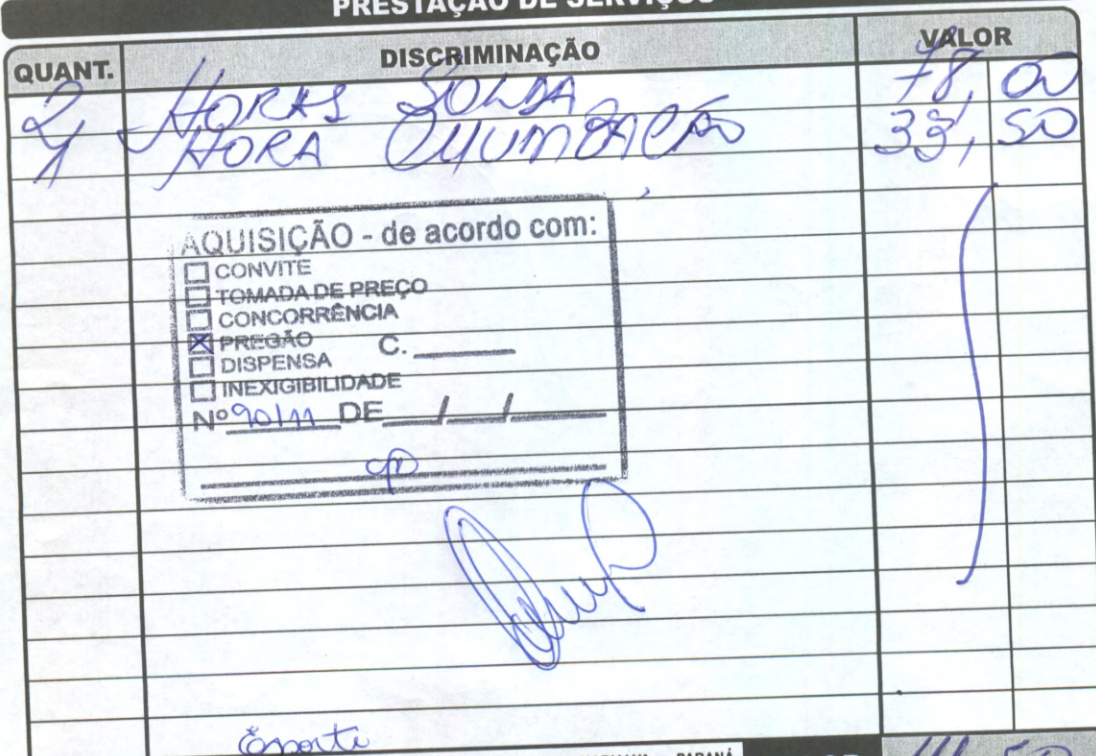 PRESTAÇÃO DE SERVIÇOS
QUANT. DISCRIMINAÇÃO VALOR
2 - HORAS SOLDA 78,00
1 HORA 33,50
AQUISIÇÃO - de acordo com:
CONVITE
TOMADA DE PREÇO
CONCORRÊNCIA
X PREGÃO C. ______
DISPENSA
INEXIGIBILIDADE
Nº 90/11 DE __/__/____
Esporte
PARANÁ